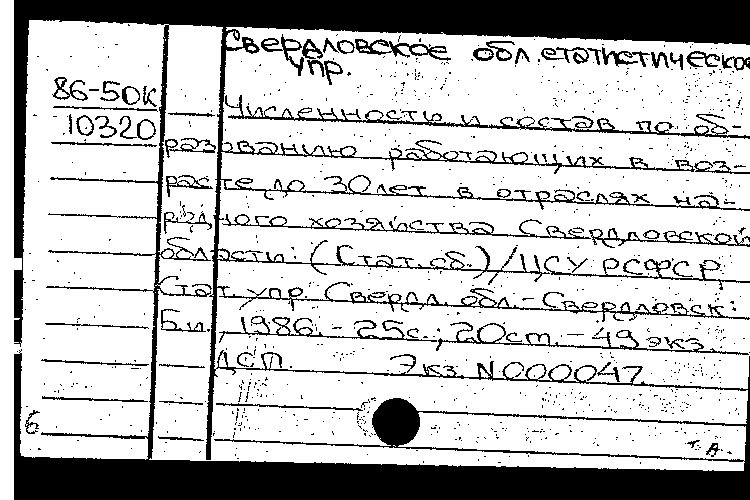 Свердловское обл.статистическое
упр.
86-50к
10320
Численность и состав по об-
разованию работающих в воз-
расте до 30лет в отраслях на-
родного хозяйства Свердловской
области: (Стат.об.)/ЦСУ РСФСР,
Стат. упр. Свердл. обл.-Свердловск:
Б.и., 1986.-25с.; 20см.-49экз.
ДСП. Экз. N000047.
6
т. А.